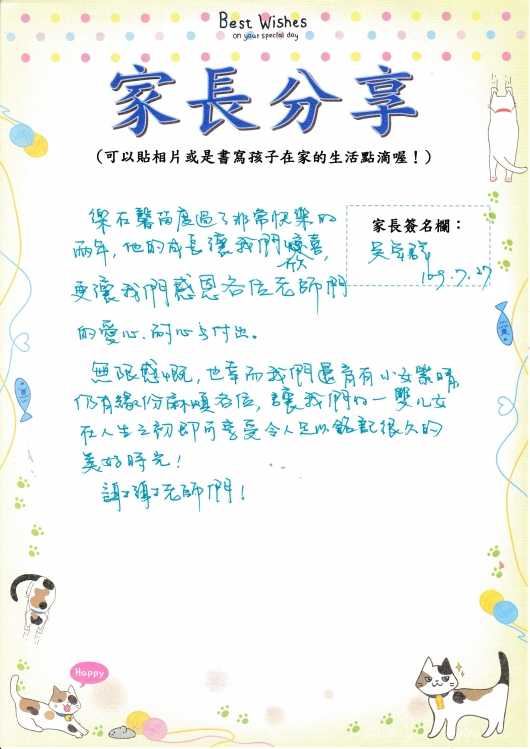 Best Wishes
on your special day
家長分享
(可以貼相片或是書寫孩子在家的生活點滴喔！)
家長簽名欄：
吳
109.7.27
在馨苗度過了非常快樂的
兩年，他的成長讓我們欣喜，
更讓我們感恩各位老師們
的愛心、耐心與付出。
無限感慨，也幸而我們還育有小女
仍有緣份麻煩各位，讓我們的一雙兒女
在人生之初即可享受令人足以銘記很久的
美好時光！
謝謝老師們！
Happy